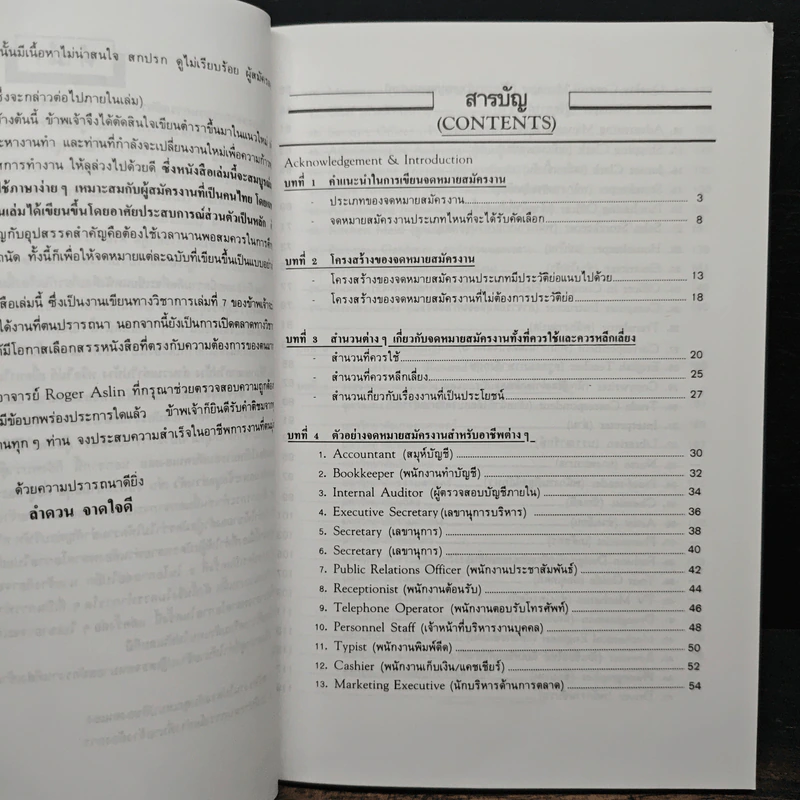 นั้นมีเนื้อหาไม่น่าสนใจ สกปรก ดูไม่เรียบร้อย ผู้สมัคร
ซึ่งจะกล่าวต่อไปภายในเล่ม)
ข้างต้นนี้ ข้าพเจ้าจึงได้ตัดสินใจเขียนตำราขึ้นมาในแนวใหม่
หางานทำ และท่านที่กำลังจะเปลี่ยนงานใหม่เพื่อความ
การทำงาน ให้ลุล่วงไปด้วยดี ซึ่งหนังสือเล่มนี้จะสมบูรณ์
ใช้ภาษาง่าย ๆ เหมาะสมกับผู้สมัครงานที่เป็นคนไทย
เล่มได้เขียนขึ้นโดยอาศัยประสบการณ์ส่วนตัวเป็นหลัก
กับอุปสรรคสำคัญคือต้องใช้เวลานานพอสมควรในการ
ทั้งนี้ก็เพื่อให้จดหมายแต่ละฉบับที่เขียนขึ้นเป็นแบบอย่าง
สือเล่มนี้ ซึ่งเป็นงานเขียนทางวิชาการเล่มที่ 7 ของข้าพเจ้า
ได้งานที่ตนปรารถนา นอกจากนี้ยังเป็นการเปิดตลาดทาง
มีโอกาสเลือกสรรหนังสือที่ตรงกับความต้องการของ
อาจารย์ Roger Aslin ที่กรุณาช่วยตรวจสอบความถูกต้อง
มีข้อบกพร่องประการใดแล้ว ข้าพเจ้าก็ยินดีรับคำติชม
ท่านทุก ๆ ท่าน จงประสบความสำเร็จในอาชีพการงานที่
ด้วยความปรารถนาดียิ่ง
ลำดวน จาดใจดี
สารบัญ
(CONTENTS)
Acknowledgement & Introduction
บทที่ 1 คำแนะนำในการเขียนจดหมายสมัครงาน
- ประเภทของจดหมายสมัครงาน 3
- จดหมายสมัครงานประเภทไหนที่จะได้รับคัดเลือก 8
บทที่ 2 โครงสร้างของจดหมายสมัครงาน
- โครงสร้างของจดหมายสมัครงานประเภทมีประวัติย่อแนบไปด้วย 13
- โครงสร้างของจดหมายสมัครงานที่ไม่ต้องการประวัติย่อ 18
บทที่ 3 สำนวนต่าง ๆ เกี่ยวกับจดหมายสมัครงานทั้งที่ควรใช้และควรหลีกเลี่ยง
- สำนวนที่ควรใช้ 20
- สำนวนที่ควรหลีกเลี่ยง 25
- สำนวนเกี่ยวกับเรื่องงานที่เป็นประโยชน์ 27
บทที่ 4 ตัวอย่างจดหมายสมัครงานสำหรับอาชีพต่าง ๆ
1. Accountant (สมุห์บัญชี) 30
2. Bookkeeper (พนักงานทำบัญชี) 32
3. Internal Auditor (ผู้ตรวจสอบบัญชีภายใน) 34
4. Executive Secretary (เลขานุการบริหาร) 36
5. Secretary (เลขานุการ) 38
6. Secretary (เลขานุการ) 40
7. Public Relations Officer (พนักงานประชาสัมพันธ์) 42
8. Receptionist (พนักงานต้อนรับ) 44
9. Telephone Operator (พนักงานตอบรับโทรศัพท์) 46
10. Personnel Staff (เจ้าหน้าที่บริหารงานบุคคล) 48
11. Typist (พนักงานพิมพ์ดีด) 50
12. Cashier (พนักงานเก็บเงิน/แคชเชียร์) 52
13. Marketing Executive (นักบริหารด้านการตลาด) 54